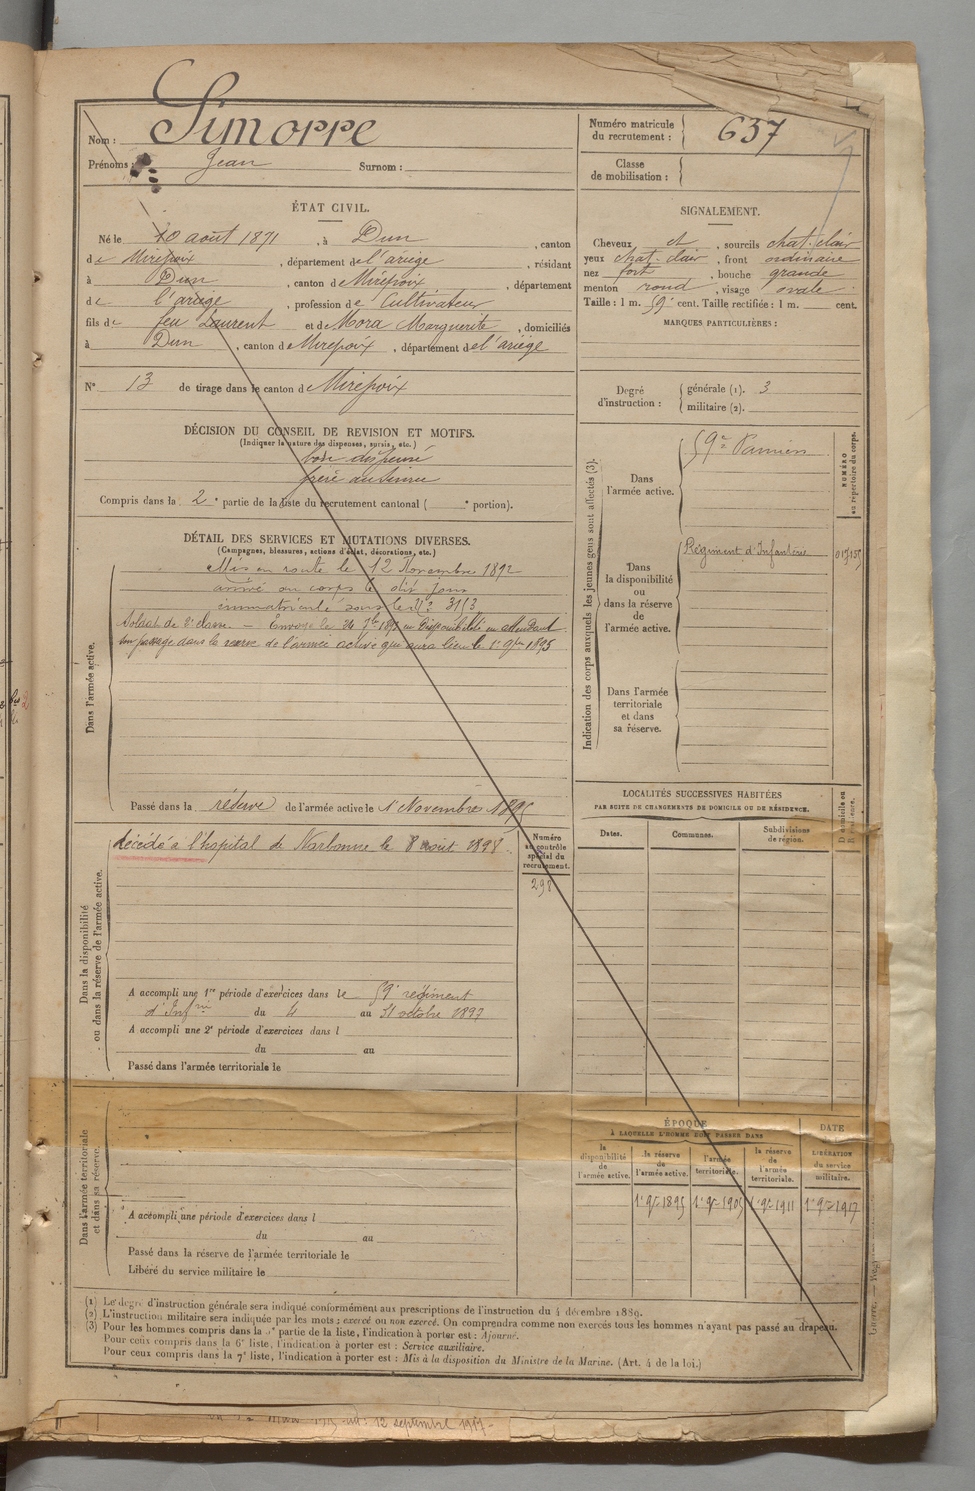 Nom : Simorre
Prénoms : Jean Surnom :
Numéro matricule
du recrutement : 637
Classe
de mobilisation :
ÉTAT CIVIL.
Né le 10 août 1871, à Dun, canton
de Mirepoix, département de l'ariège, résidant
à Dun, canton de Mirepoix, département
de l'ariège, profession de Cultivateur
fils de feu Laurent et de Mora Marguerite, domiciliés
à Dun, canton de Mirepoix, département de l'ariège
SIGNALEMENT.
Cheveux et, sourcils chat. clair
yeux chat. clair, front ordinaire
nez fort, bouche grande
menton rond, visage ovale
Taille : 1 m. 59 cent. Taille rectifiée : 1 m. cent.
MARQUES PARTICULIÈRES :
N° 13 de tirage dans le canton de Mirepoix
Degré
d'instruction :
générale (1). 3
militaire (2).
DÉCISION DU CONSEIL DE REVISION ET MOTIFS.
(Indiquer la nature des dispenses, sursis, etc.)
bon dispensé
frère au Service
Compris dans la 2e partie de la liste du recrutement cantonal ( e portion).
DÉTAIL DES SERVICES ET MUTATIONS DIVERSES.
(Campagnes, blessures, actions d'éclat, décorations, etc.)
Dans l'armée active.
Mis en route le 12 Novembre 1892
arrivé au corps le dit jour
immatriculé sous le N° 3153
Soldat de 2e classe. — Envoyé le 24 7bre 1893 en Disponibilité en attendant
son passage dans la reserve de l'armée active qui aura lieu le 1er 9bre 1895
Passé dans la réserve de l'armée active le 1er Novembre 1895
Dans la disponibilité
ou dans la réserve de l'armée active.
décédé à l'hopital de Narbonne le 8 août 1898.
Numéro
au contrôle
spécial du
recrutement.
298
A accompli une 1re période d'exercices dans le 59e régiment
d'Infrie du 4 au 31 octobre 1897
A accompli une 2e période d'exercices dans l
du au
Passé dans l'armée territoriale le
Dans l'armée territoriale
et dans sa réserve.
A accompli une période d'exercices dans l
du au
Passé dans la réserve de l'armée territoriale le
Libéré du service militaire le
Indication des corps auxquels les jeunes gens sont affectés (3).
NUMÉRO
au répertoire du corps.
Dans
l'armée active.
59e Pamiers
Dans
la disponibilité
ou
dans la réserve
de
l'armée active.
Régiment d'Infanterie
Dans l'armée
territoriale
et dans
sa réserve.
LOCALITÉS SUCCESSIVES HABITÉES
PAR SUITE DE CHANGEMENTS DE DOMICILE OU DE RÉSIDENCE.
Dates. Communes. Subdivisions
de région.
Domicile ou
Résidence.
ÉPOQUE
À LAQUELLE L'HOMME DOIT PASSER DANS
DATE
LIBÉRATION
du service
militaire.
la
disponibilité
de
l'armée active.
la réserve
de
l'armée active.
l'armée
territoriale.
la réserve
de
l'armée
territoriale.
1er 9bre 1895 1er 9bre 1905 1er 9bre 1911 1er 9bre 1917
(1) Le degré d'instruction générale sera indiqué conformément aux prescriptions de l'instruction du 4 décembre 1889.
(2) L'instruction militaire sera indiquée par les mots : exercé ou non exercé. On comprendra comme non exercés tous les hommes n'ayant pas passé au drapeau.
(3) Pour les hommes compris dans la 5e partie de la liste, l'indication à porter est : Ajourné.
Pour ceux compris dans la 6e liste, l'indication à porter est : Service auxiliaire.
Pour ceux compris dans la 7e liste, l'indication à porter est : Mis à la disposition du Ministre de la Marine. (Art. 4 de la loi.)
12 septembre 1917